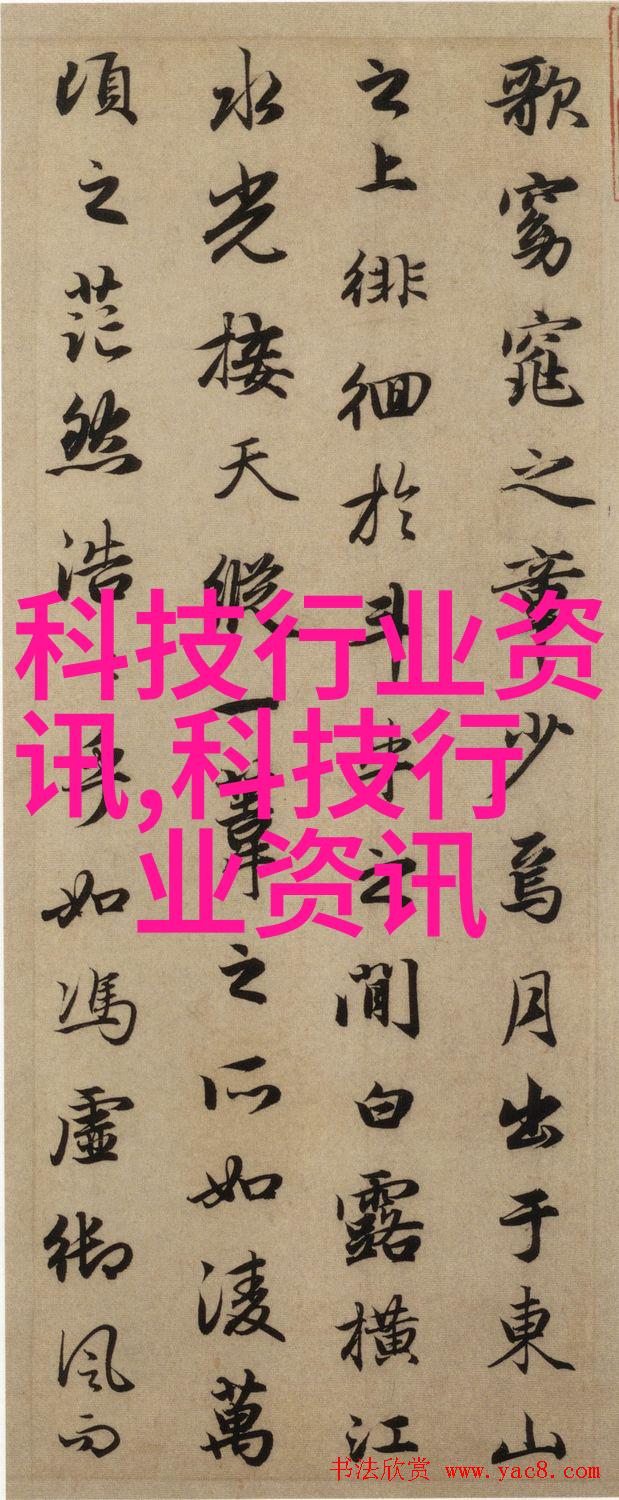 歌窈窕之章少焉月出于東山
之上徘徊於斗牛之間白露橫江
水光接天縱一葦之所如凌萬
頃之茫然浩乎如馮虛御風而
科技行业资
讯,科技行
业资讯
书法欣赏 www.yac8.com